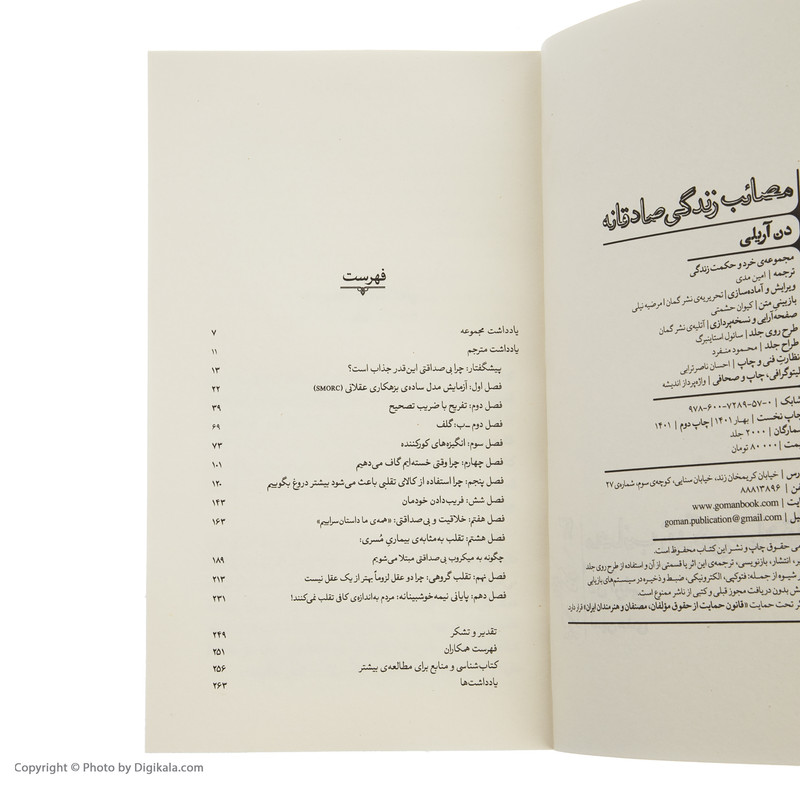 مصائب زندگی صادقانه
دن آریلی
مجموعه‌ی خرد و حکمت زندگی
ترجمه | امین مدی
ویرایش و آماده‌سازی | تحریریه‌ی نشر گمان | مرضیه نیلی
بازبینی متن | کیوان حشمتی
صفحه‌آرایی و نسخه‌پردازی | آتلیه‌ی نشر گمان
طرح روی جلد | سائول استاینبرگ
طراح جلد | محمود منفرد
نظارت فنی و چاپ | احسان ناصرترابی
لیتوگرافی، چاپ و صحافی | واژه‌پرداز اندیشه
شابک | ۹۷۸-۶۰۰-۷۲۸۹-۵۷-۰
چاپ نخست | بهار ۱۴۰۱ | چاپ دوم | ۱۴۰۱
شمارگان | ۲۰۰۰ جلد
یمت | ۸۰۰۰۰ تومان
درس | خیابان کریمخان زند، خیابان سنایی، کوچه‌ی سوم، شماره‌ی ۲۷
فن | ۸۸۸۱۳۸۹۶
ایت | www.gomanbook.com
میل | goman.publication@gmail.com
می حقوق چاپ و نشر این کتاب محفوظ است.
یر، انتشار، بازنویسی، ترجمه‌ی این اثر یا قسمتی از آن و استفاده از طرح روی جلد
ر شیوه از جمله: فتوکپی، الکترونیکی، ضبط و ذخیره در سیستم‌های بازیابی
ش بدون دریافت مجوز قبلی و کتبی از ناشر ممنوع است.
ثر تحت حمایت «قانون حمایت از حقوق مؤلفان، مصنفان و هنرمندان ایران» قرار دارد.
فهرست
یادداشت مجموعه ۷
یادداشت مترجم ۱۱
پیشگفتار: چرا بی‌صداقتی این‌قدر جذاب است؟ ۱۳
فصل اول: آزمایش مدل ساده‌ی بزهکاری عقلانی (SMORC) ۲۲
فصل دوم: تفریح با ضریب تصحیح ۳۹
فصل دوم ـ ب: گلف ۶۹
فصل سوم: انگیزه‌های کورکننده ۷۳
فصل چهارم: چرا وقتی خسته‌ایم گاف می‌دهیم ۱۰۱
فصل پنجم: چرا استفاده از کالای تقلبی باعث می‌شود بیشتر دروغ بگوییم ۱۲۰
فصل شش: فریب‌دادن خودمان ۱۴۳
فصل هفتم: خلاقیت و بی‌صداقتی: «همه‌ی ما داستان‌سراییم» ۱۶۳
فصل هشتم: تقلب به‌مثابه‌ی بیماریِ مُسری:
چگونه به میکروب بی‌صداقتی مبتلا می‌شویم ۱۸۹
فصل نهم: تقلب گروهی: چرا دو عقل لزوماً بهتر از یک عقل نیست ۲۱۳
فصل دهم: پایانی نیمه‌خوشبینانه: مردم به‌اندازه‌ی کافی تقلب نمی‌کنند! ۲۳۱
تقدیر و تشکر ۲۴۹
فهرست همکاران ۲۵۱
کتاب‌شناسی و منابع برای مطالعه‌ی بیشتر ۲۵۶
یادداشت‌ها ۲۶۳
Copyright © Photo by Digikala.com